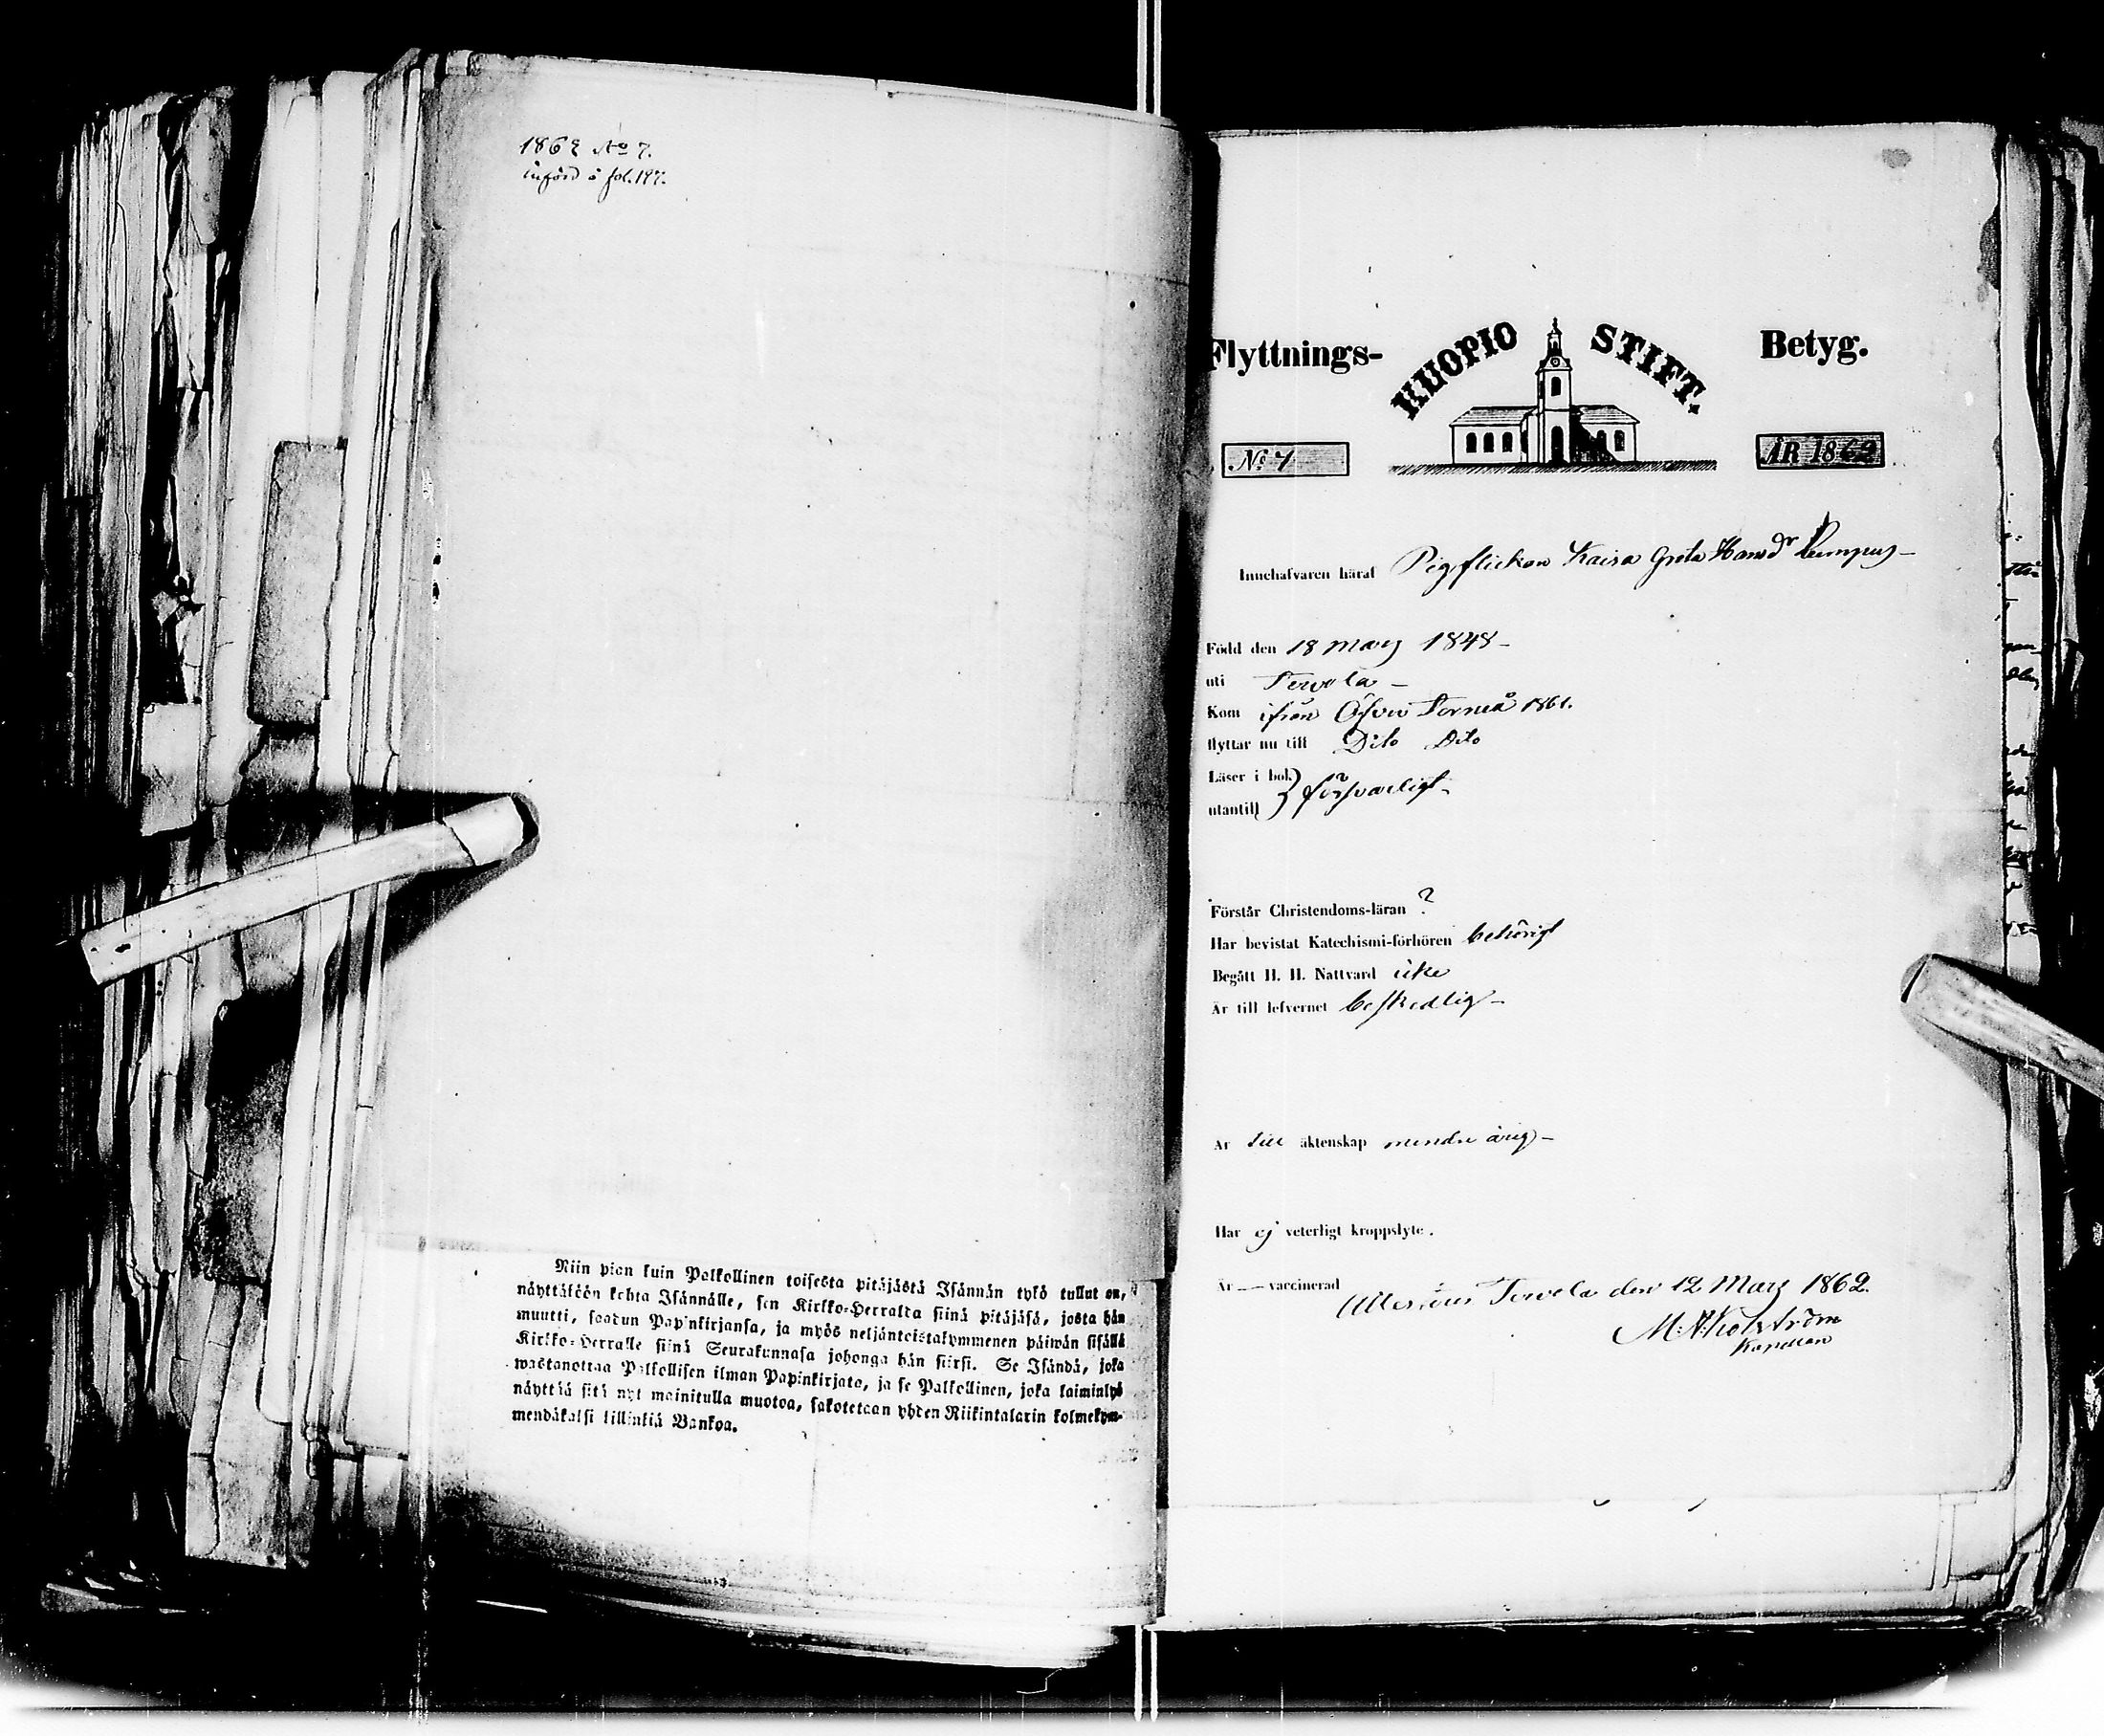 1862 No 7.
införd å fol. 197.
Niin pian kuin Palkollinen toisesta pitäjästä Isännän tykö tullut on,
näyttäköön kohta Isännälle, sen Kirkko-Herralta siinä pitäjäsä, josta hän
muutti, saadun Papinkirjansa, ja myös neljäntoistakymmenen päiwän sisällä
Kirkko-Herralle siinä Seurakunnasa johonga hän siirsi. Se Isändä, joka
wastanottaa Palkollisen ilman Papinkirjata, ja se Palkollinen, joka laiminlyö
näyttää sitä nyt mainitulla muotoa, sakotetaan yhden Riikintalarin kolmekym-
mendäkaksi killinkiä Bankoa.
Flyttnings- KUOPIO STIFT. Betyg.
No 7 ÅR 1862
Innehafvaren häraf Pigflickan Kaisa Greta Hansdr Rumpus
Född den 18 Mars 1848
uti Tervola
Kom ifrån Öfver Torneå 1861.
flyttar nu till Dito Dito
Läser i bok
utantill } försvarligt
Förstår Christendoms-läran ?
Har bevistat Katechismi-förhören behörigt
Begått H. H. Nattvard icke
Är till lefvernet beskedlig
Är till äktenskap mindre årig
Har ej veterligt kroppslyte.
Är — vaccinerad
Attesterar Tervola den 12 Mars 1862.
M. A. Holmström
Kapellan